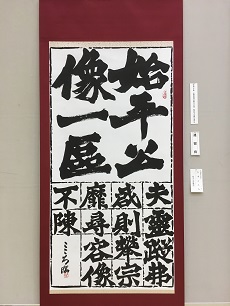 始平公
像一區
夫靈蹤弗
啟則攀宗
靡尋容像
不陳